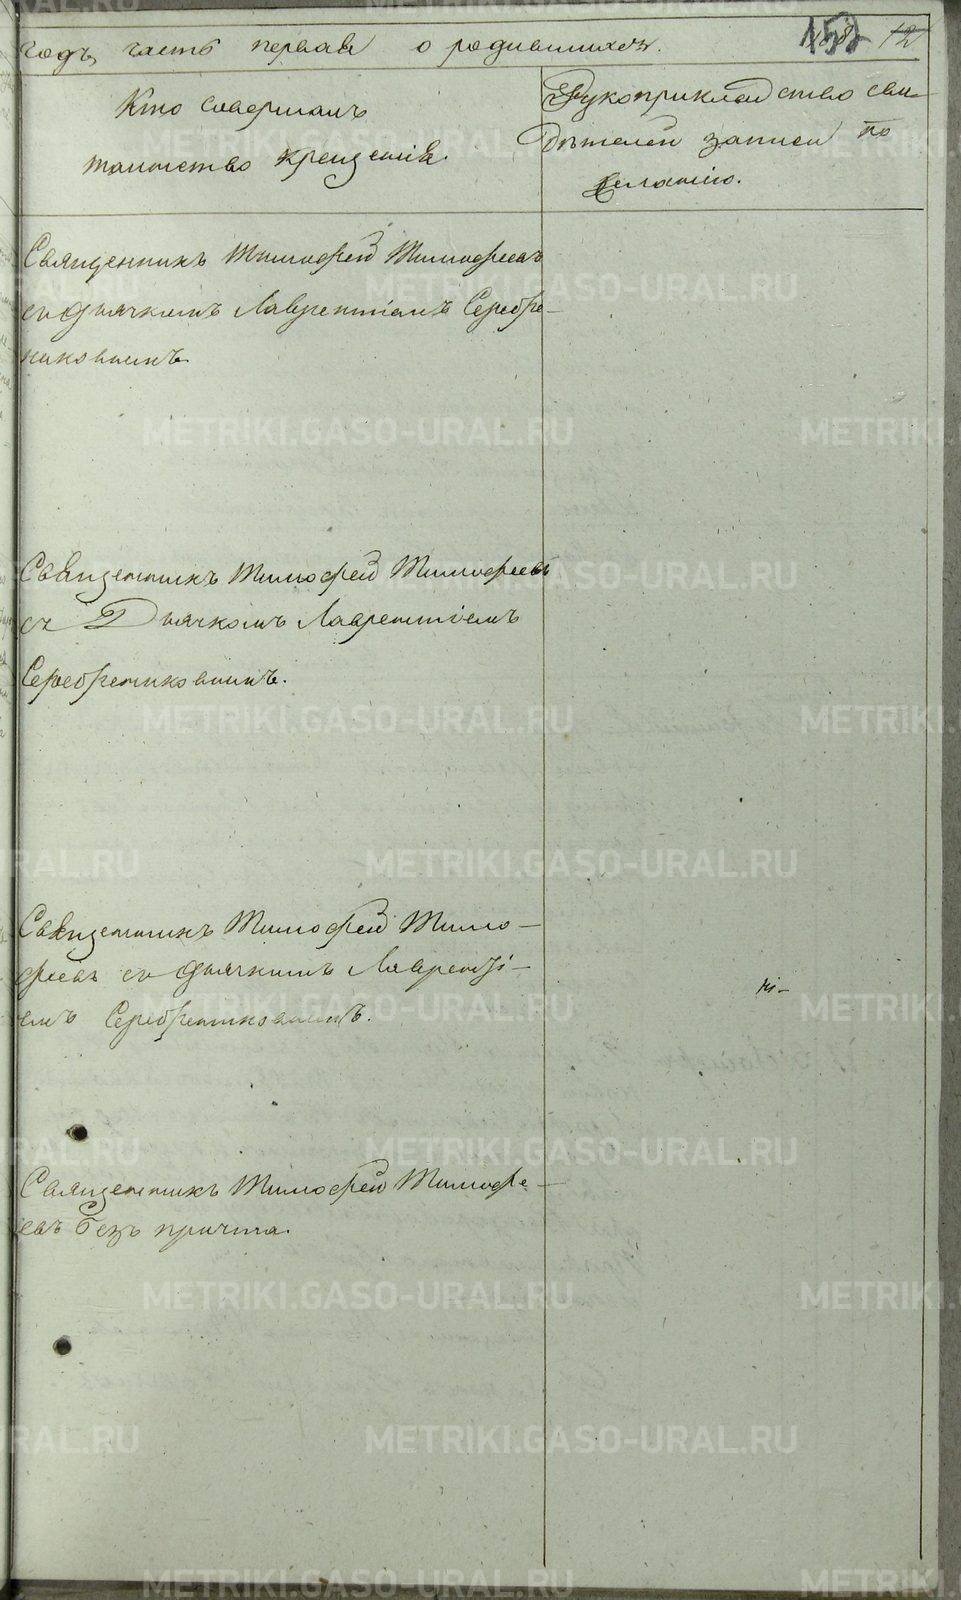 годъ, часть первая о родившихся. 152 12
Кто совершалъ
таинство крещенія.
Рукоприкладство сви-
дѣтелей записи по
желанію.
Священникъ Тимофей Тимофеевъ
съ дьячкомъ Лаврентіемъ Серебре-
никовымъ.
Священникъ Тимофей Тимофеевъ
съ Дьячкомъ Лаврентіемъ
Серебрениковымъ.
Священникъ Тимофей Тимо-
феевъ съ дьячкомъ Лавренті-
емъ Серебрениковымъ.
Священникъ Тимофей Тимофе-
евъ безъ причта.
METRIKI.GASO-URAL.RU